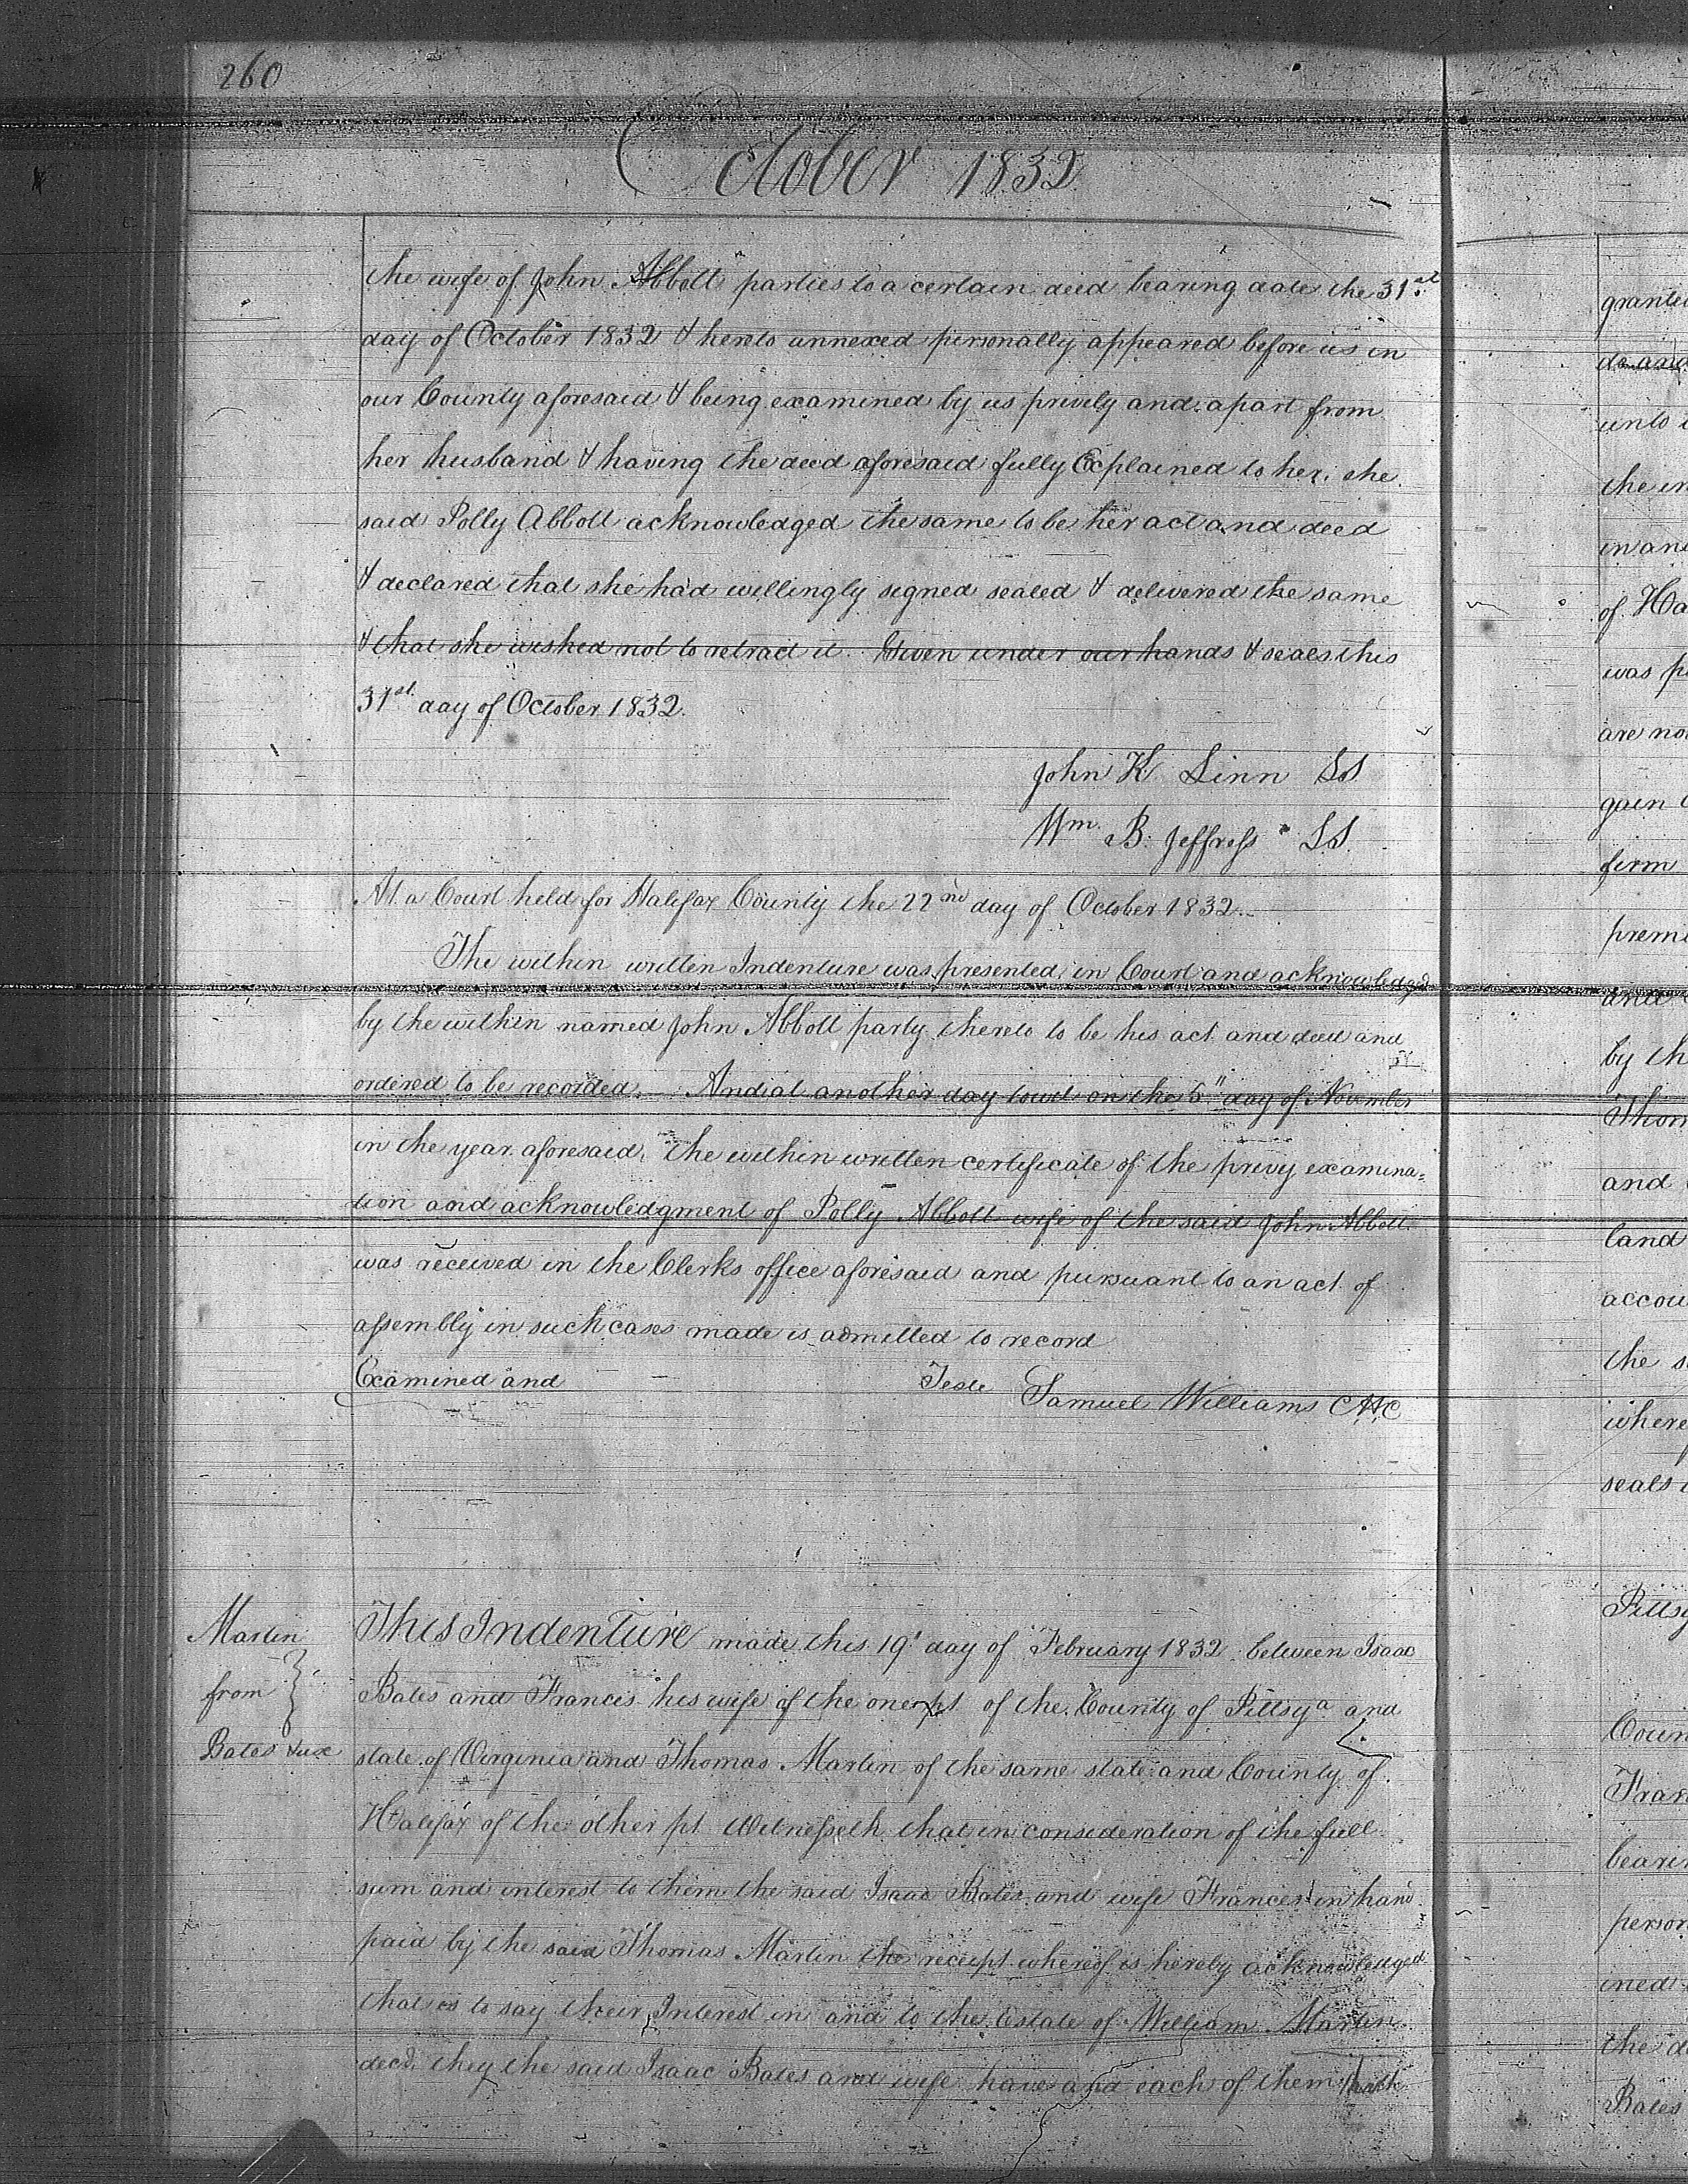 260
October 1832
the wife of John Abbott parties to a certain deed bearing date the 31st
day of October 1832 & hereto annexed personally appeared before us in
our County aforesaid & being examined by us privily and apart from
her husband & having the deed aforesaid fully Explained to her, she
said Polly Abbott acknowledged the same to be her act and deed
& declared that she had willingly signed sealed & delivered the same
& that she wished not to retract it. Given under our hands & seals this
31st day of October 1832.
John K. Linn LS
Wm. B. Jeffress LS
At a Court held for Halifax County the 22nd day of October 1832.
The within written Indenture was presented in Court and acknowledged
by the within named John Abbott party thereto to be his act and deed and
ordered to be recorded. And at another day towit on the 5" day of November
in the year aforesaid, the within written certificate of the privy examina=
tion and acknowledgment of Polly Abbott wife of the said John Abbott
was received in the Clerks office aforesaid and pursuant to an act of
assembly in such cases made is admitted to record
Examined and
Teste Samuel Williams CHC
Martin
from
Bates & ux
This Indenture made this 19t day of February 1832 between Isaac
Bates and Francis his wife of the one pt of the County of Pittsya and
state of Virginia and Thomas Martin of the same state and County of
Halifax of the other pt. Witnesseth that in consideration of the full
sum and interest to them the said Isaac Bates and wife Frances in hand
paid by the said Thomas Martin the receipt whereof is hereby acknowledged
that is to say their Interest in and to the Estate of William Martin
decd. they the said Isaac Bates and wife have and each of them hath
granted
unto
of Ha
was p
are not
gain
firm
premi
and
by th
Thom
and
land
accou
the s
where
seals
Pittsy
Coun
Fran
bearin
person
ined
the d
Bates